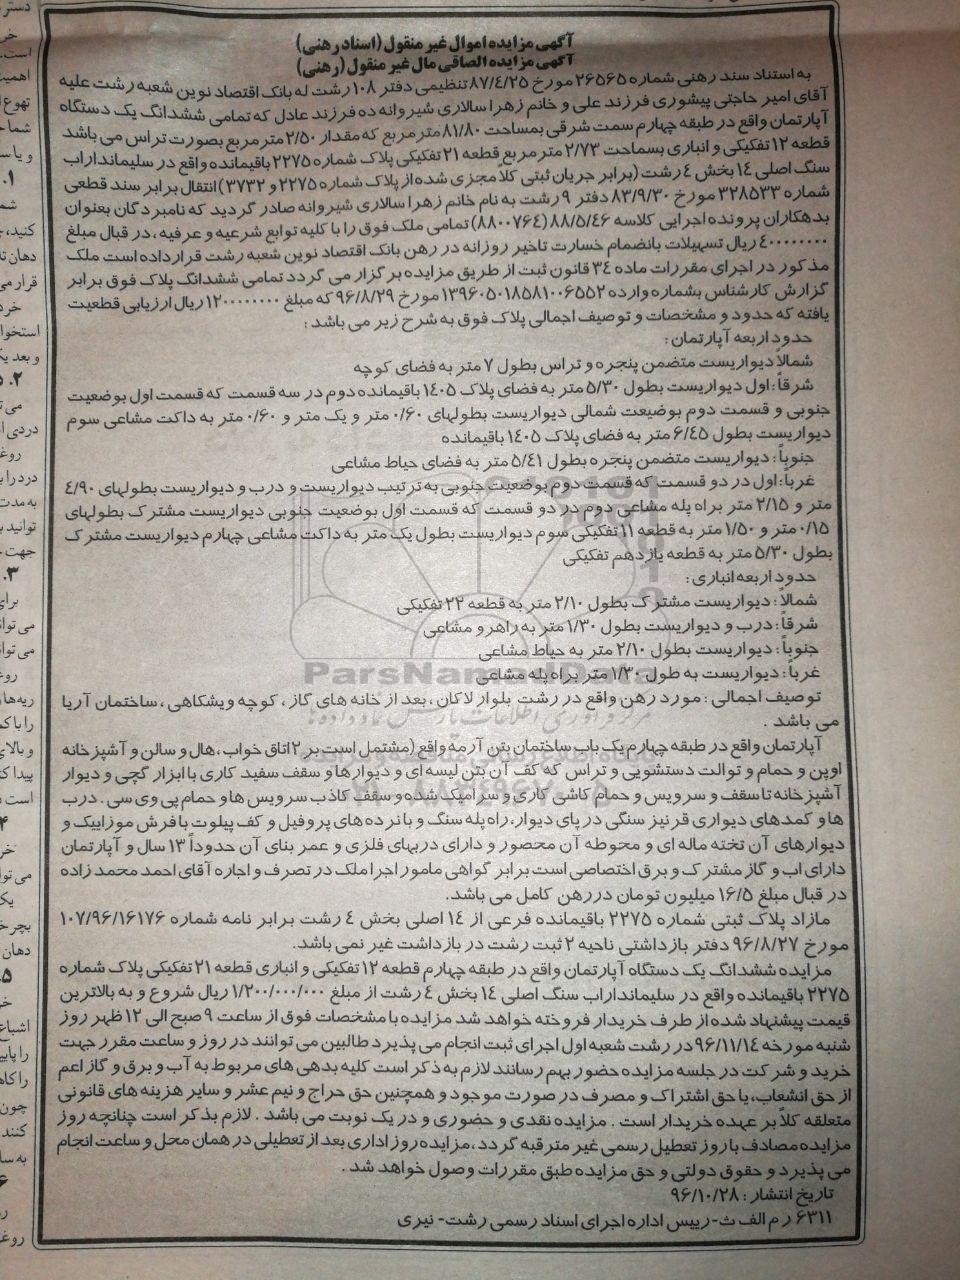 آگهی مزایده اموال غیر منقول (اسناد رهنی)
آگهی مزایده الصاقی مال غیر منقول (رهنی)
به استناد سند رهنی شماره ۲۶۵۶۵ مورخ ۸۷/۴/۲۵ تنظیمی دفتر ۱۰۸ رشت له بانک اقتصاد نوین شعبه رشت علیه
آقای امیر حاجتی پیشوری فرزند علی و خانم زهرا سالاری شیروانه ده فرزند عادل که تمامی ششدانگ یک دستگاه
آپارتمان واقع در طبقه چهارم سمت شرقی بمساحت ۸۱/۸۰ متر مربع که مقدار ۲/۵۰ متر مربع بصورت تراس می باشد
قطعه ۱۲ تفکیکی و انباری بسماحت ۲/۷۳ متر مربع قطعه ۲۱ تفکیکی پلاک شماره ۲۲۷۵ باقیمانده واقع در سلیمانداراب
سنگ اصلی ۱۴ بخش ۴ رشت (برابر جریان ثبتی کلاً مجزی شده از پلاک شماره ۲۲۷۵ و ۳۷۳۲) انتقال برابر سند قطعی
شماره ۳۲۸۵۳۳ مورخ ۸۳/۹/۳۰ دفتر ۹ رشت به نام خانم زهرا سالاری شیروانه صادر گردید که نامبردگان بعنوان
بدهکاران پرونده اجرایی کلاسه ۸۸/۵/۴۶ (۸۸۰۰۷۶۴) تمامی ملک فوق را با کلیه توابع شرعیه و عرفیه، در قبال مبلغ
۴۰۰۰۰۰۰۰۰ ریال تسهیلات بانضمام خسارت تاخیر روزانه در رهن بانک اقتصاد نوین شعبه رشت قرار داده است ملک
مذکور در اجرای مقررات ماده ۳۴ قانون ثبت از طریق مزایده برگزار می گردد تمامی ششدانگ پلاک فوق برابر
گزارش کارشناس بشماره وارده ۱۳۹۶۰۵۰۱۸۵۸۱۰۰۶۵۵۲ مورخ ۹۶/۸/۲۹ که مبلغ ۱۲۰۰۰۰۰۰۰۰ ریال ارزیابی قطعیت
یافته که حدود و مشخصات و توصیف اجمالی پلاک فوق به شرح زیر می باشد :
حدود اربعه آپارتمان :
شمالاً دیواریست متضمن پنجره و تراس بطول ۷ متر به فضای کوچه
شرقاً : اول دیواریست بطول ۵/۳۰ متر به فضای پلاک ۱۴۰۵ باقیمانده دوم در سه قسمت که قسمت اول بوضعیت
جنوبی و قسمت دوم بوضیعت شمالی دیواریست بطولهای ۰/۶۰ متر و یک متر و ۰/۶۰ متر به داکت مشاعی سوم
دیواریست بطول ۶/۴۵ متر به فضای پلاک ۱۴۰۵ باقیمانده
جنوباً : دیواریست متضمن پنجره بطول ۵/۴۱ متر به فضای حیاط مشاعی
غرباً : اول در دو قسمت که قسمت دوم بوضعیت جنوبی به ترتیب دیواریست و درب و دیواریست بطولهای ۴/۹۰
متر و ۲/۱۵ متر براه پله مشاعی دوم در دو قسمت که قسمت اول بوضعیت جنوبی دیواریست مشترک بطولهای
۰/۱۵ متر و ۱/۵۰ متر به قطعه ۱۱ تفکیکی سوم دیواریست بطول یک متر به داکت مشاعی چهارم دیواریست مشترک
بطول ۵/۳۰ متر به قطعه یازدهم تفکیکی
حدود اربعه انباری :
شمالاً : دیواریست مشترک بطول ۲/۱۰ متر به قطعه ۲۲ تفکیکی
شرقاً : درب و دیواریست بطول ۱/۳۰ متر به راهرو مشاعی
جنوباً : دیواریست بطول ۲/۱۰ متر به حیاط مشاعی
غرباً : دیواریست به طول ۱/۳۰ متر براه پله مشاعی
توصیف اجمالی : مورد رهن واقع در رشت بلوار لاکان ، بعد از خانه های گاز ، کوچه ویشکاهی ، ساختمان آریا
می باشد .
آپارتمان واقع در طبقه چهارم یک باب ساختمان بتن آرمه واقع (مشتمل است بر ۲ اتاق خواب ، هال و سالن و آشپزخانه
اوپن و حمام و توالت دستشویی و تراس که کف آن بتن لیسه ای و دیوارها و سقف سفید کاری با ابزار گچی و دیوار
آشپزخانه تا سقف و سرویس و حمام کاشی کاری و سرامیک شده و سقف کاذب سرویس ها و حمام پی وی سی . درب
ها و کمدهای دیواری قرنیز سنگی در پای دیوار ، راه پله سنگ و با نرده های پروفیل و کف پیلوت با فرش موزاییک و
دیوارهای آن تخته ماله ای و محوطه آن محصور و دارای دربهای فلزی و عمر بنای آن حدوداً ۱۳ سال و آپارتمان
دارای اب و گاز مشترک و برق اختصاصی است برابر گواهی مامور اجرا ملک در تصرف و اجاره آقای احمد محمد زاده
در قبال مبلغ ۱۶/۵ میلیون تومان در رهن کامل می باشد.
مازاد پلاک ثبتی شماره ۲۲۷۵ باقیمانده فرعی از ۱۴ اصلی بخش ۴ رشت برابر نامه شماره ۱۰۷/۹۶/۱۶۱۷۶
مورخ ۹۶/۸/۲۷ دفتر بازداشتی ناحیه ۲ ثبت رشت در بازداشت غیر نمی باشد.
مزایده ششدانگ یک دستگاه آپارتمان واقع در طبقه چهارم قطعه ۱۲ تفکیکی و انباری قطعه ۲۱ تفکیکی پلاک شماره
۲۲۷۵ باقیمانده واقع در سلیمانداراب سنگ اصلی ۱۴ بخش ۴ رشت از مبلغ ۱/۲۰۰/۰۰۰/۰۰۰ ریال شروع و به بالاترین
قیمت پیشنهاد شده از طرف خریدار فروخته خواهد شد مزایده با مشخصات فوق از ساعت ۹ صبح الی ۱۲ ظهر روز
شنبه مورخه ۹۶/۱۱/۱۴ در رشت شعبه اول اجرای ثبت انجام می پذیرد طالبین می توانند در روز و ساعت مقرر جهت
خرید و شرکت در جلسه مزایده حضور بهم رسانند لازم به ذکر است کلیه بدهی های مربوط به آب و برق و گاز اعم
از حق انشعاب، یا حق اشتراک و مصرف در صورت موجود و همچنین حق حراج و نیم عشر و سایر هزینه های قانونی
متعلقه کلاً بر عهده خریدار است . مزایده نقدی و حضوری و در یک نوبت می باشد . لازم بذکر است چنانچه روز
مزایده مصادف با روز تعطیل رسمی غیر مترقبه گردد ، مزایده روز اداری بعد از تعطیلی در همان محل و ساعت انجام
می پذیرد و حقوق دولتی و حق مزایده طبق مقررات وصول خواهد شد .
تاریخ انتشار : ۹۶/۱۰/۲۸
۶۳۱۱ ر م الف ث- رییس اداره اجرای اسناد رسمی رشت- نیری
ParsNamadData